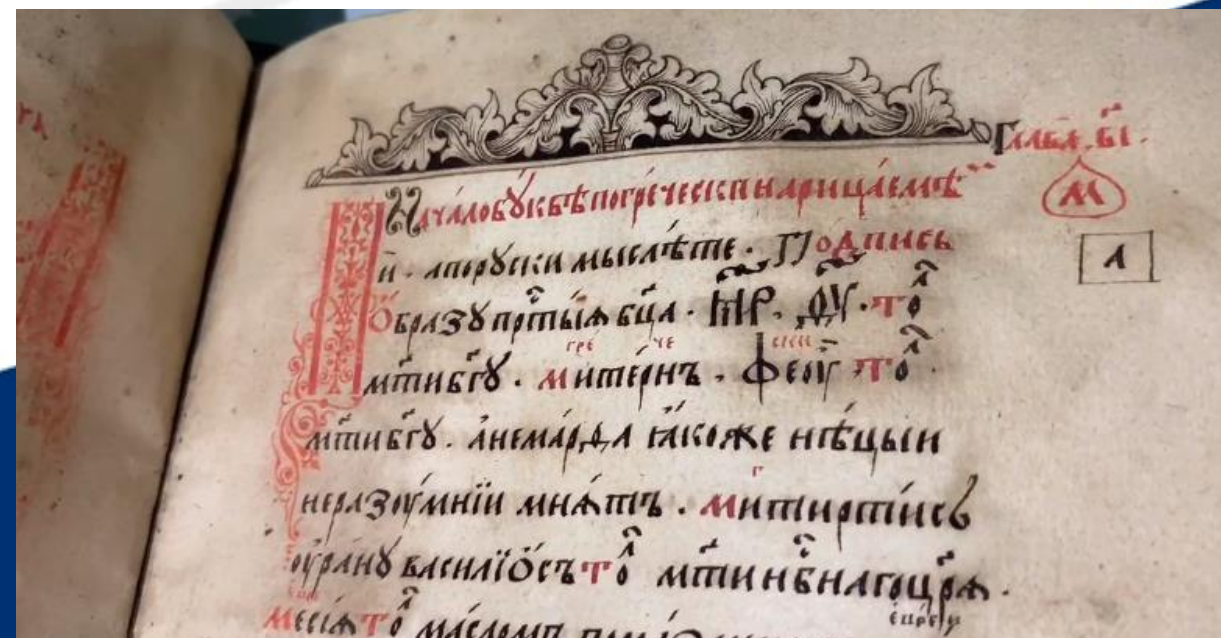 Глава. в҃і.
М
Нача́ло бꙋ́квѣ погре́чески нарица́емѣ
й. апорꙋски мысле́те. Подпись
А
О́бразꙋ прⷭ҇ты́ѧ бц҃а. М҃Р. Ѳ҃Ꙋ. то̑лⷦ
гре че ски
мт҃и бг҃ꙋ. митернъ. Феоу҆. то̑лⷦ
мт҃и бг҃ꙋ. а҆немарѳа ꙗ҆́коже нѣ́цыи
неразꙋ́мнїи мнѧ́тъ. митиртисъ
оурⷶнꙋ василїосъ то̑лⷦ мт҃и нб҃наго цр҃ѧ.
месїѧ то̑лⷦ ма́сломъ